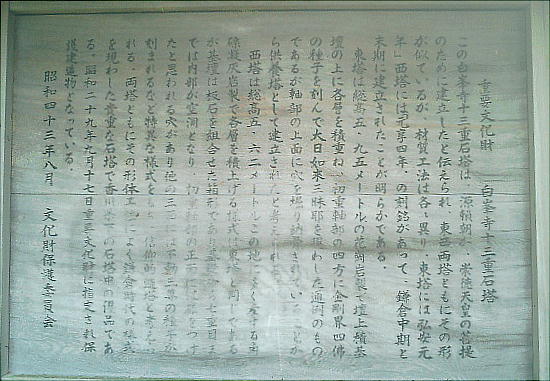 重要文化財　白峯寺十三重石塔
この白峯寺十三重石塔は、源頼朝が、崇徳天皇の菩提
のために建立したと伝えられ、東西両塔ともにその形
が似ているが、材質工法は各々異り、東塔には弘安元
年、西塔には元亨四年、の刻銘があって、鎌倉中期と
末期に建立されたことが明らかである。
東塔は総高五・九五メートルの花崗岩製で壇上積基
壇の上に各層を積重ね、初重軸部の四方に金剛界四佛
の種子を刻んで大日如来三昧耶を現わした通例のもの
であるが軸部の上面に穴を堀り納
ら供養塔として建立されたと考えられ
西塔は総高五・六二メートルこの地に多く産する
礫凝灰岩製で各層を積上げる様式は東塔と同じである
が基壇は板石を組合せた箱形であり
では内部が空洞となり、初重軸部の正面には
たと思われる穴があり他の三
刻まれるなど特異な様式をもち、信仰的
れる。両塔ともにその形体工
を現わした貴重な石塔で香川
る。昭和二十九年九月十七日重要文化財に指定され保
護建造物となっている。
昭和四十三年八月　文化財保護委員会